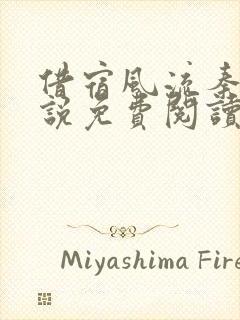 借宿風流秦
說免費閱讀
Miyashima Fire